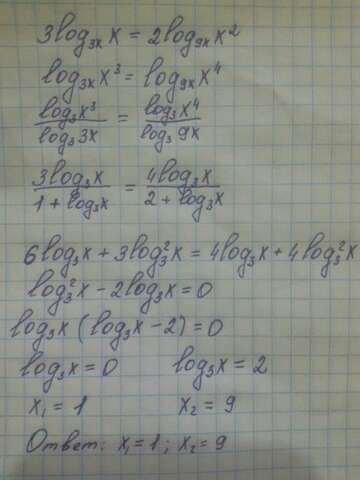 3log₃ₓx = 2log₉ₓx²
log₃ₓx³ = log₉ₓx⁴
log₃x³/log₃3x = log₃x⁴/log₃9x
3log₃x/(1 + log₃x) = 4log₃x/(2 + log₃x)
6log₃x + 3log₃²x = 4log₃x + 4log₃²x
log₃²x - 2log₃x = 0
log₃x (log₃x - 2) = 0
log₃x = 0 log₃x = 2
x₁ = 1 x₂ = 9
Ответ: x₁ = 1 ; x₂ = 9